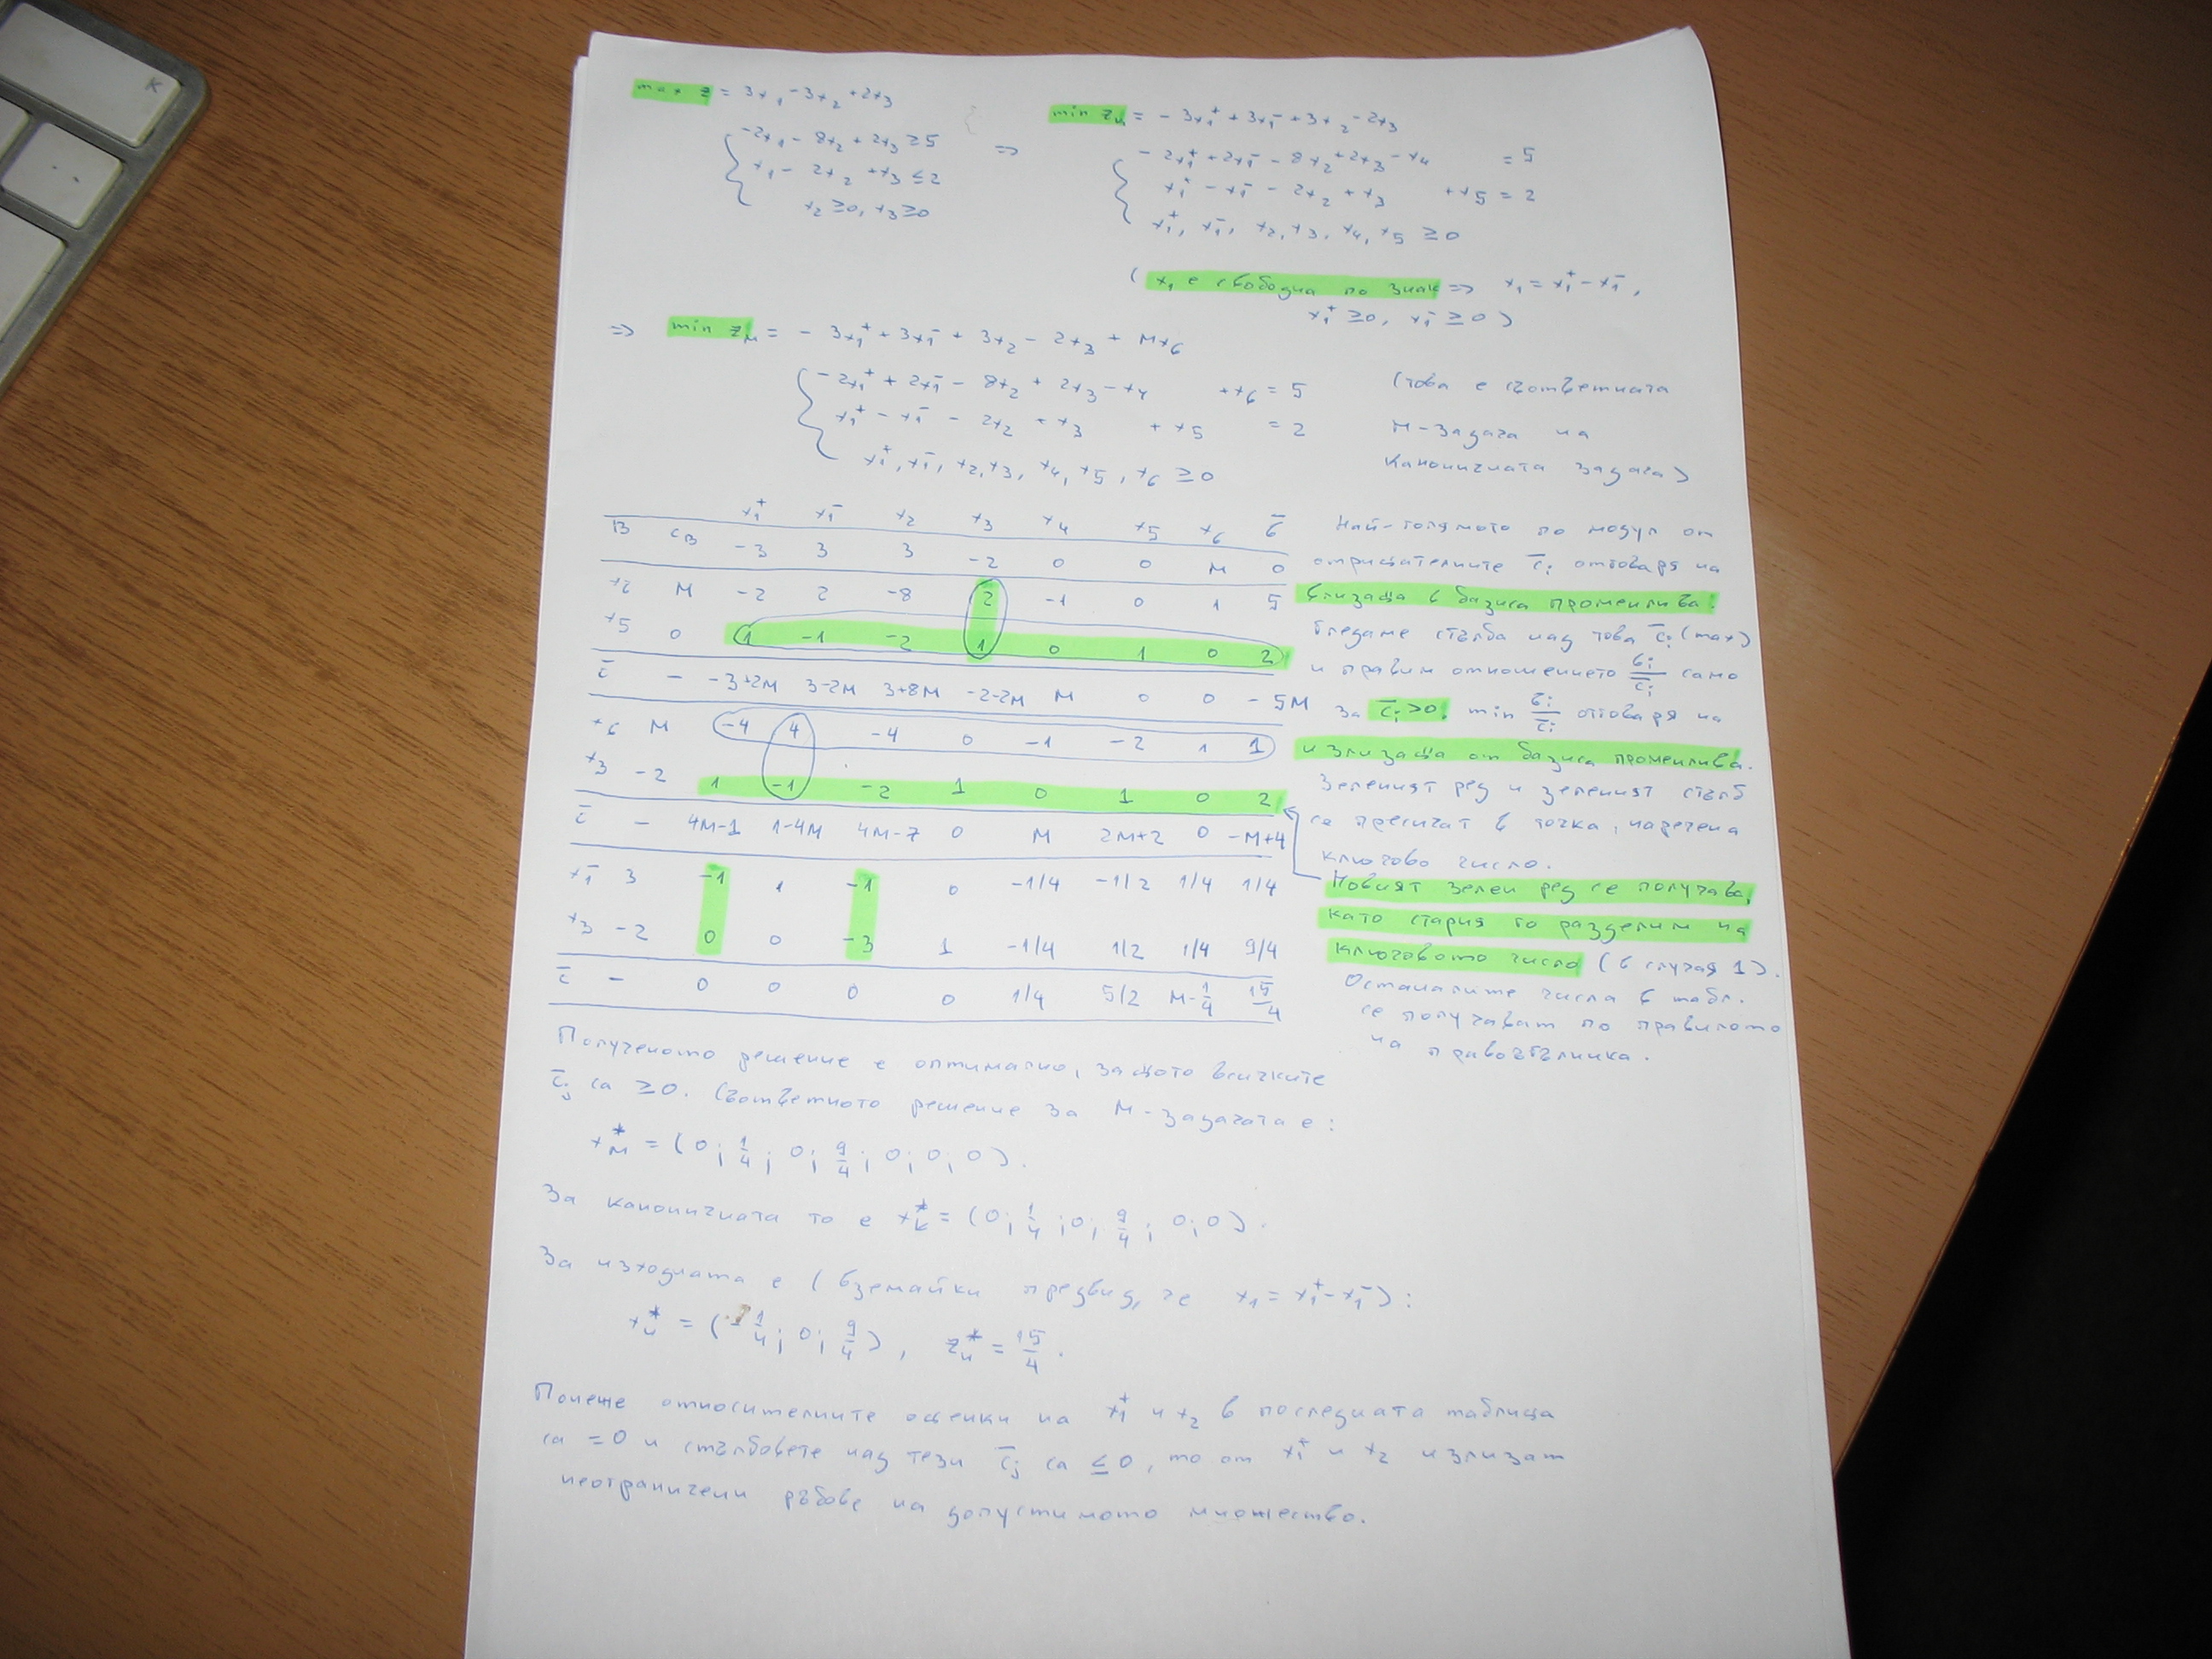 max z = 3x₁ - 3x₂ + 2x₃
-2x₁ - 8x₂ + 2x₃ ≥ 5
x₁ - 2x₂ + x₃ ≤ 2
x₂ ≥ 0, x₃ ≥ 0
⇒
min zₖ = - 3x₁⁺ + 3x₁⁻ + 3x₂ - 2x₃
- 2x₁⁺ + 2x₁⁻ - 8x₂ + 2x₃ - x₄ = 5
x₁⁺ - x₁⁻ - 2x₂ + x₃ + x₅ = 2
x₁⁺, x₁⁻, x₂, x₃, x₄, x₅ ≥ 0
( x₁ е свободна по знак ⇒ x₁ = x₁⁺ - x₁⁻,
x₁⁺ ≥ 0, x₁⁻ ≥ 0 )
⇒ min z_M = - 3x₁⁺ + 3x₁⁻ + 3x₂ - 2x₃ + Mx₆
- 2x₁⁺ + 2x₁⁻ - 8x₂ + 2x₃ - x₄ + x₆ = 5
x₁⁺ - x₁⁻ - 2x₂ + x₃ + x₅ = 2
x₁⁺, x₁⁻, x₂, x₃, x₄, x₅, x₆ ≥ 0
(това е съответната
М-задача на
каноничната задача)
x₁⁺ x₁⁻ x₂ x₃ x₄ x₅ x₆ b̄
B c_B -3 3 3 -2 0 0 M 0
x₂ M -2 2 -8 2 -1 0 1 5
x₅ 0 1 -1 -2 1 0 1 0 2
c̄ - -3+2M 3-2M 3+8M -2-2M M 0 0 -5M
x₆ M -4 4 -4 0 -1 -2 1 1
x₃ -2 1 -1 -2 1 0 1 0 2
c̄ - 4M-1 1-4M 4M-7 0 M 2M+2 0 -M+4
x₁⁻ 3 -1 1 -1 0 -1/4 -1/2 1/4 1/4
x₃ -2 0 0 -3 1 -1/4 1/2 1/4 9/4
c̄ - 0 0 0 0 1/4 5/2 M-1/4 15/4
Най-голямото по модул от
отрицателните c̄ᵢ отговаря на
влизаща в базиса променлива.
Гледаме стълба над това c̄ᵢ (max)
и правим отношението bᵢ/c̄ᵢ само
за c̄ᵢ > 0, min bᵢ/c̄ᵢ отговаря на
излизаща от базиса променлива.
Зеленият ред и зеленият стълб
се пресичат в точка, наречена
ключово число.
Новият зелен ред се получава,
като стария го разделим на
ключовото число (в случая 1).
Останалите числа в табл.
се получават по правилото
на правоъгълника.
Полученото решение е оптимално, защото всичките
c̄ⱼ са ≥ 0. Съответното решение за М-задачата е:
x*_M = (0; 1/4; 0; 9/4; 0; 0; 0).
За каноничната то е x*ₖ = (0; 1/4; 0; 9/4; 0; 0).
За изходната е (вземайки предвид, че x₁ = x₁⁺ - x₁⁻):
x*ᵤ = (-1/4; 0; 9/4), z*ᵤ = 15/4.
Понеже относителните оценки на x₁⁺ и x₂ в последната таблица
са = 0 и стълбовете над тези c̄ⱼ са ≤ 0, то от x₁⁺ и x₂ излизат
неограничени ръбове на допустимото множество.